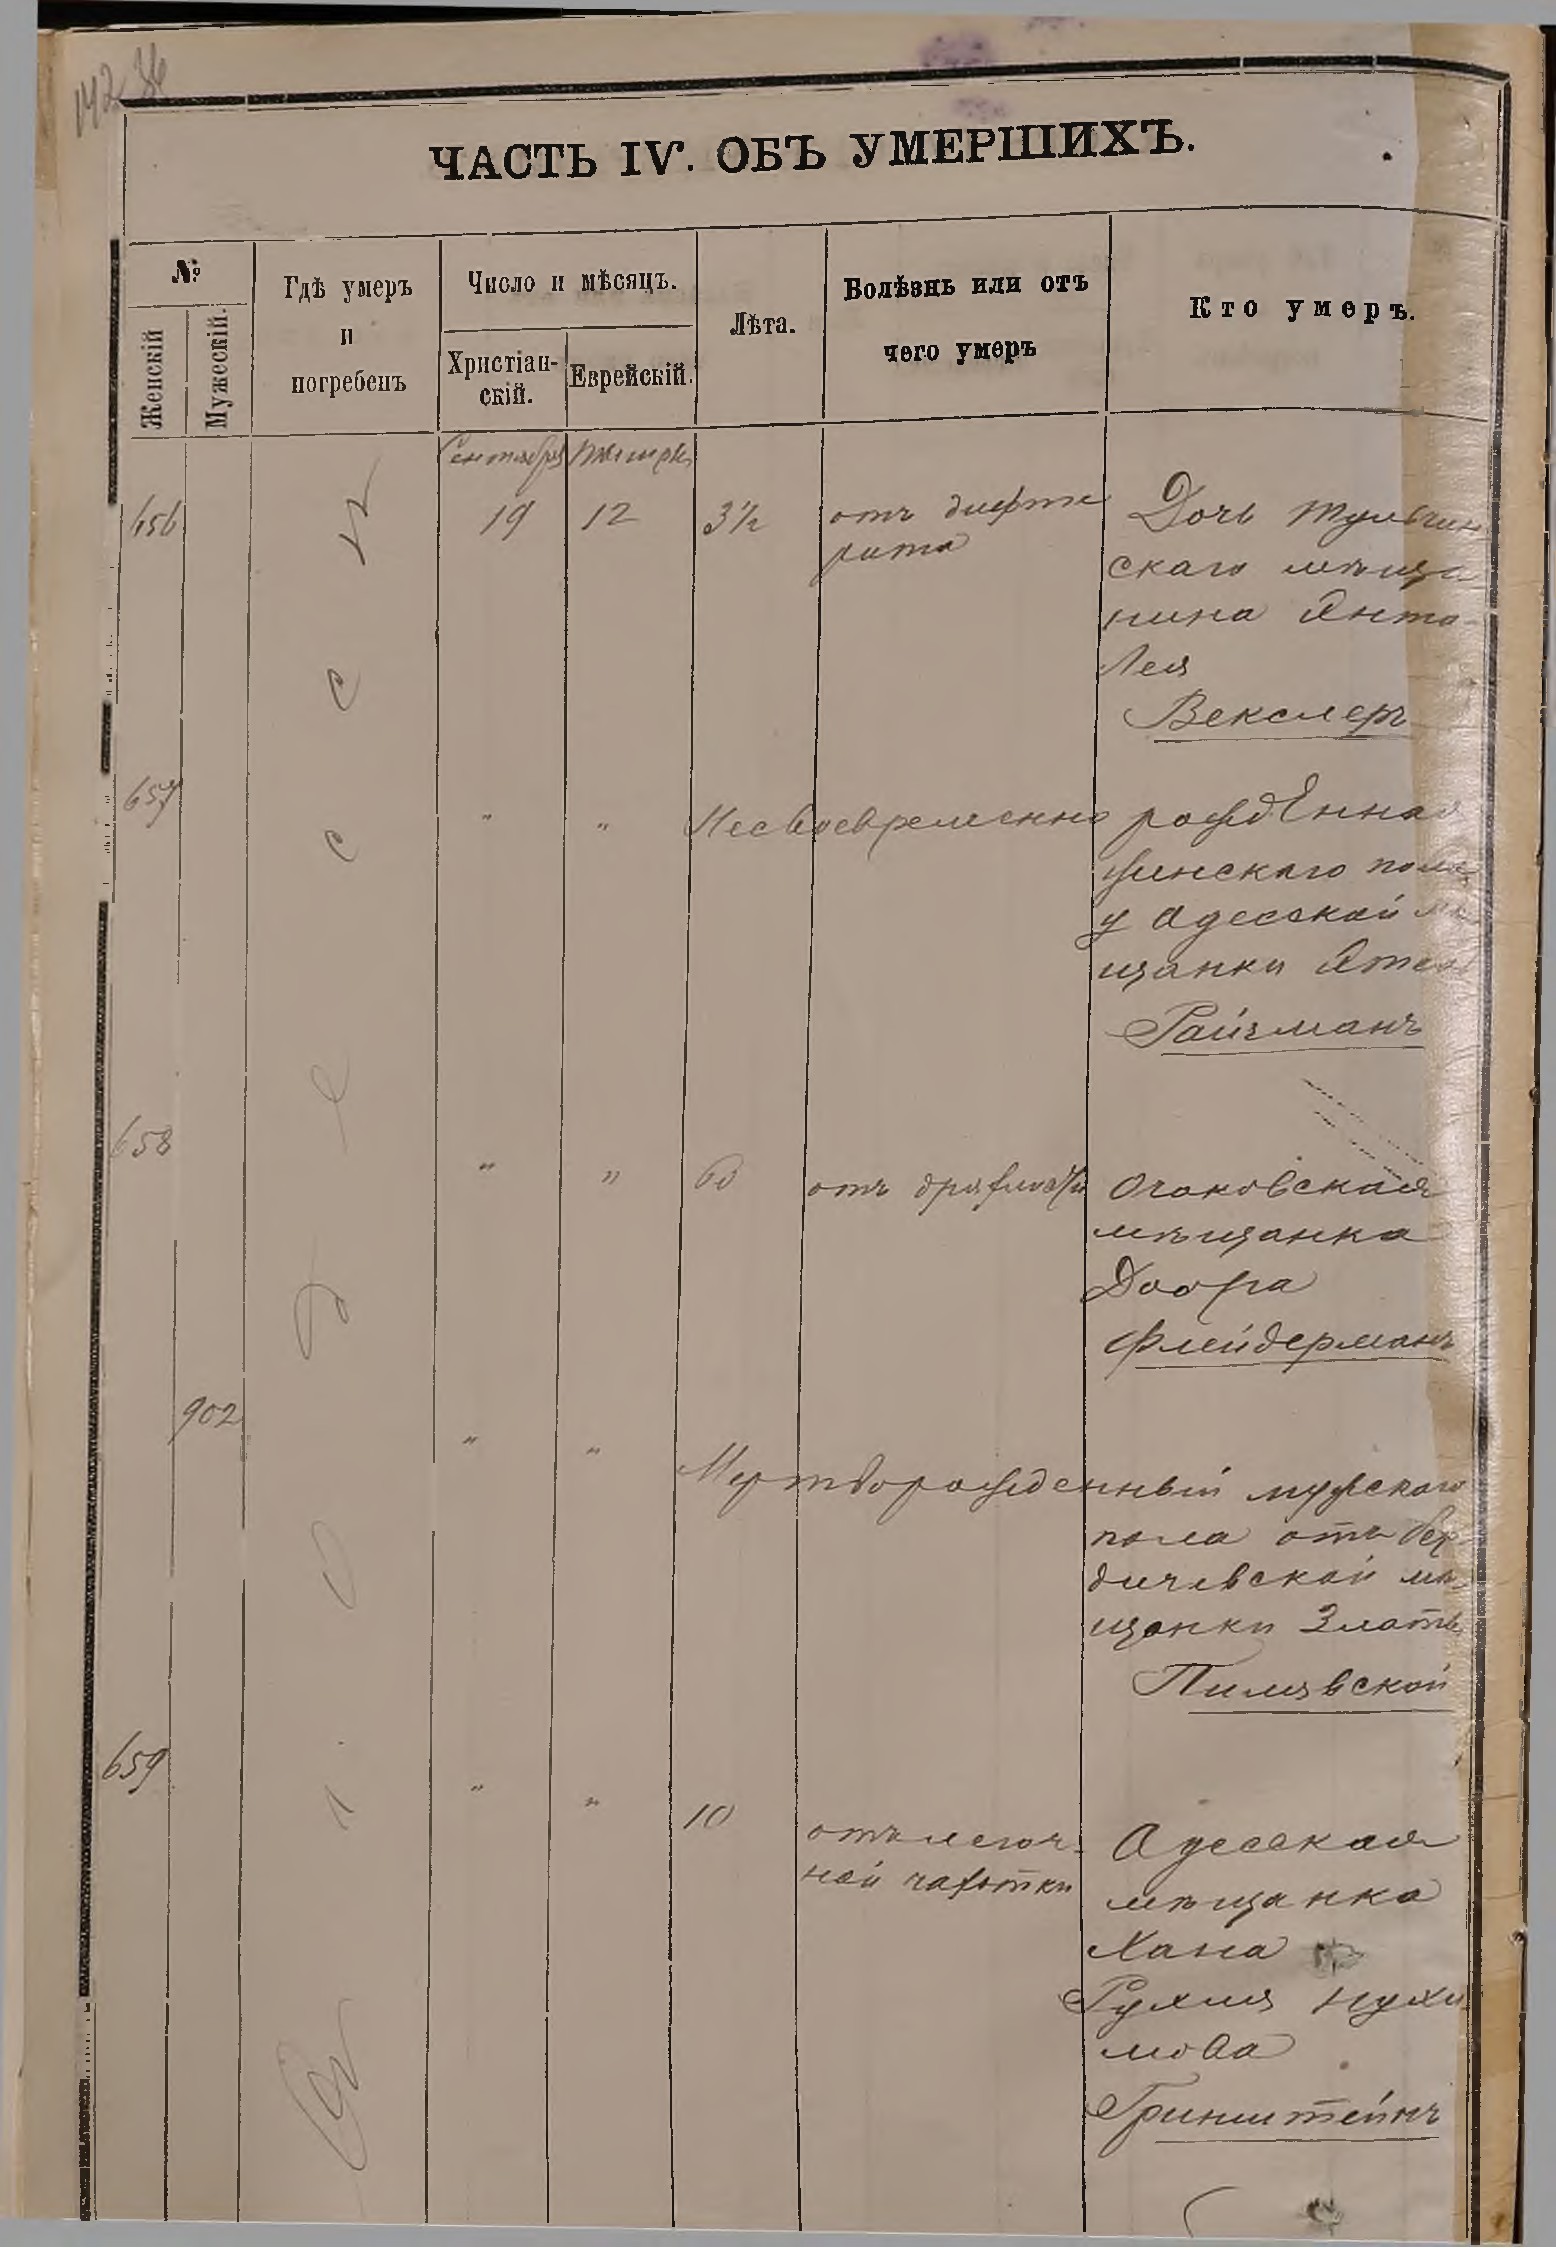 142 36
ЧАСТЬ IV. ОБЪ УМЕРШИХЪ.
№
Женскій
Мужескій.
Гдѣ умеръ
и
погребенъ
Число и мѣсяцъ.
Христіан-
скій.
Еврейскій.
Лѣта.
Болѣзнь или отъ
чего умеръ
Кто умеръ.
Сентября Тишри
656 19 12 3½ отъ дифте Дочь тульчин
рита скаго мѣща
нина Янта-
Лея
Векслеръ
657 " " Несвоевременно рожденная
женскаго пола
у Одесской мѣ
щанки
Райчманъ
658 " " 60 отъ дряхлости Очаковская
мѣщанка
Двойра
Флейдерманъ
902 " " Мертворожденный мужскаго
пола отъ бер
дичевской мѣ
щанки Златы
Пилявской
659 " " 10 отъ легоч- Одесская
ной чахотки мѣщанка
Хана
Рухля Нухи
мова
Гринштейнъ